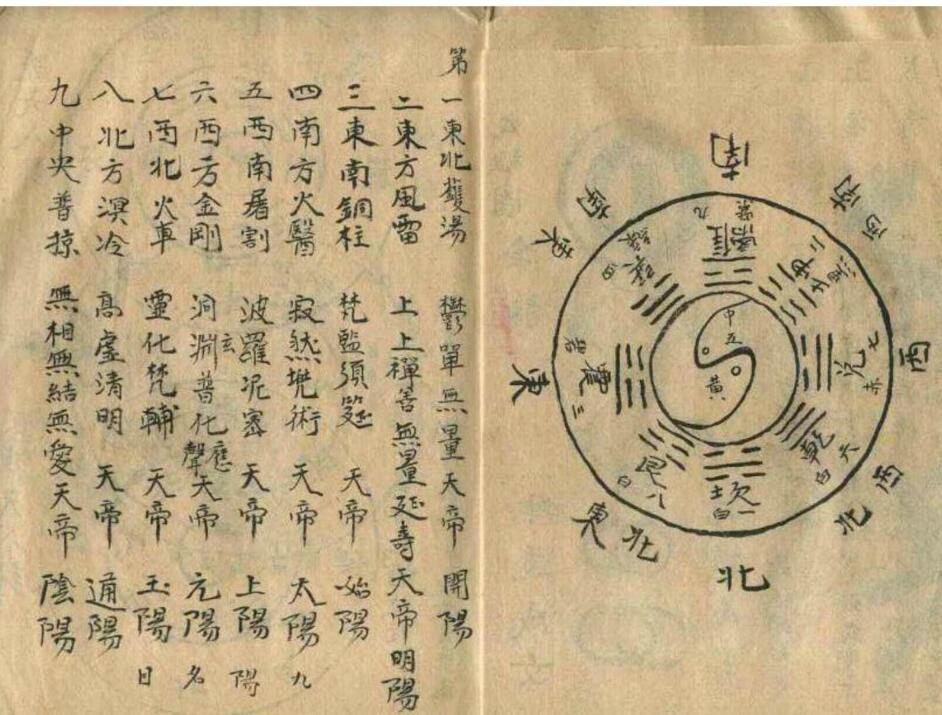 南
西南
西
西北
北
東北
東
東南
離九紫
坤二黑
兌七赤
乾六白
坎一白
艮八白
震三碧
巽四綠
中五黃
第一東北鑊湯 鬱單無量天帝 開陽
二東方風雷 上上禪善無量延壽天帝 明陽
三東南銅柱 梵監須筵 天帝 始陽
四南方火醫 寂然兠術 天帝 太陽 九
五西南屠割 波羅泥密 天帝 上陽 陽
六西方金剛 洞淵玄普化應聲天帝 元陽 名
七西北火車 靈化梵輔 天帝 玉陽 日
八北方溟冷 高虛清明 天帝 通陽
九中央普掠 無相無結無愛天帝 陰陽